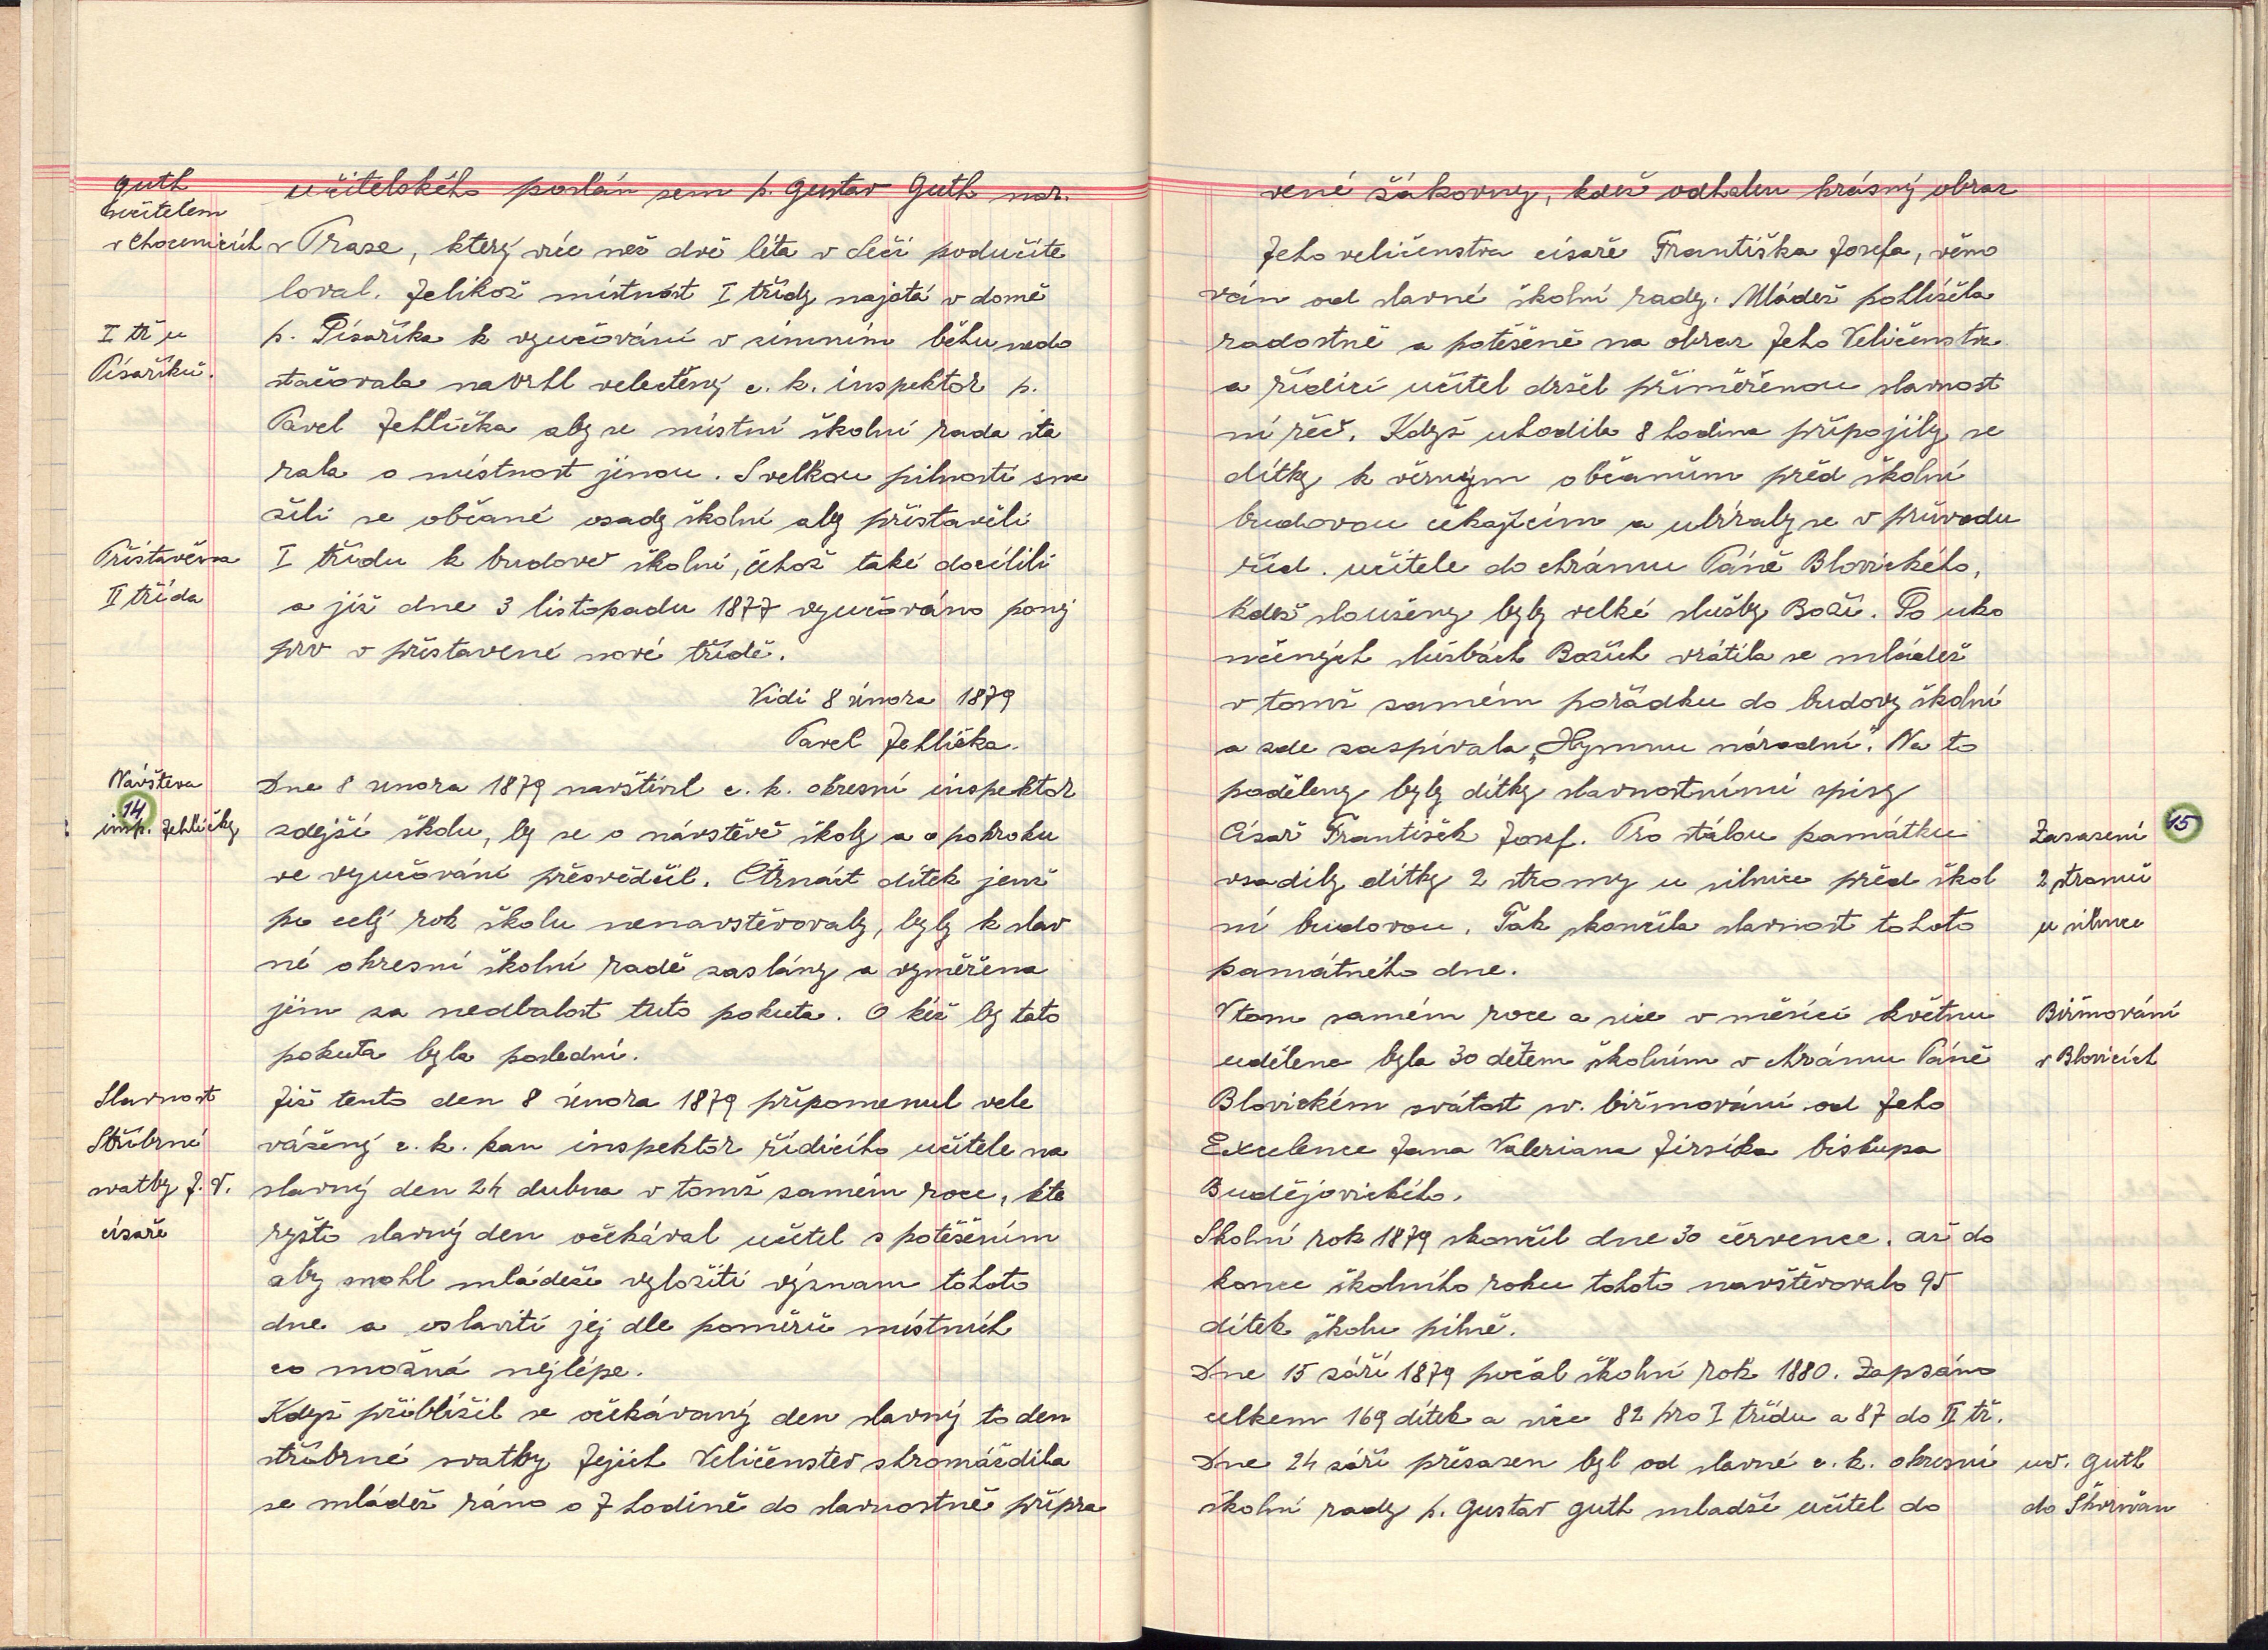 Guth
učitelem
v Chocenicích
I tř u
Písaříků.
Přístavěna
II třída
Návšteva
14
insp. Jehličky
Slavnost
Stříbrné
svatby J. V.
císaře
učitelského poslán sem p. Gustav Guth nar.
v Praze, který víc než dvě léta v Seči podučite
loval. Jelikož místnost I třídy najatá v domě
p. Písaříka k vyučování v zimním běhu nedo
stačovala navrhl velectěný c. k. inspektor p.
Pavel Jehlička aby se místní školní rada sta
rala o místnost jinou. S velkou pilností sna
žili se občané osady školní aby přistavěli
I třídu k budově školní, čehož také docílili
a již dne 3 listopadu 1877 vyučováno ponej
prv v přistavené nové třídě.
Vidi 8 února 1879
Pavel Jehlička.
Dne 8 unora 1879 navštívil c. k. okresní inspektor
zdejší školu, by se o návstěvě školy a o pokroku
ve vyučování přesvědčil. Čtrnáct dítek jenž
po celý rok školu nenavstěvovaly, byly k slav
né okresní školní radě zaslány a vyměřena
jim za nedbalost tuto pokuta. O kéž by tato
pokuta byla poslední.
Již tento den 8 února 1879 připomenul vele
vážený c. k. pan inspektor řídicího učitele na
slavný den 24 dubna v tomž samém roce, kte
rýžto slavný den očekával učitel s potěšením
aby mohl mládeži vyložiti význam tohoto
dne a oslaviti jej dle poměrů místních
co možná nejlépe.
Když přiblížil se očekávaný den slavný to den
stříbrné svatby Jejich Veličenstev shromáždila
se mládež ráno o 7 hodině do slavnostně připra
vené šákovny, kdež odhalen krásný obraz
Jeho veličenstva císaře Františka Josefa, věno
ván od slavné školní rady. Mládež pohlížela
radostně a potěšeně na obraz Jeho Veličenstva
a řídící učitel držel přiměřenou slavnost
ní řeč. Když uhodila 8 hodina připojily se
dítky k věrným občanům před školní
budovou čekajícím a ubíraly se v průvodu
říd. učitele do chrámu Páně Blovického,
kdež slouženy byly velké služby Boží. Po uko
nčených službách Božích vrátila se mládež
v tomž samém pořádku do budovy školní
a zde zaspívala „Hymnu národní". Na to
poděleny byly dítky slavnostními spisy
Císař František Josef. Pro stálou památku
vsadily dítky 2 stromy u silnice před škol
ní budovou. Tak skončila slavnost tohoto
památného dne.
V tom samém roce a sice v měsíci květnu
udělena byla 30 dětem školním v chrámu Páně
Blovickém svátost sv. biřmování od Jeho
Excelence Jana Valeriana Jirsíka biskupa
Budějovického.
Skolní rok 1879 skončil dne 30 července. až do
konce školního roku tohoto navštěvovalo 95
dítek školu pilně.
Dne 15 září 1879 počal školní rok 1880. Zapsáno
celkem 169 dítek a sice 82 pro I třídu a 87 do II tř.
Dne 24 září přesazen byl od slavné c. k. okresní
školní rady p. Gustav Guth mladší učitel do
15
Zasazení
2 stromů
u silnice
Biřmování
v Blovicích
uč. Guth
do Skvrňan